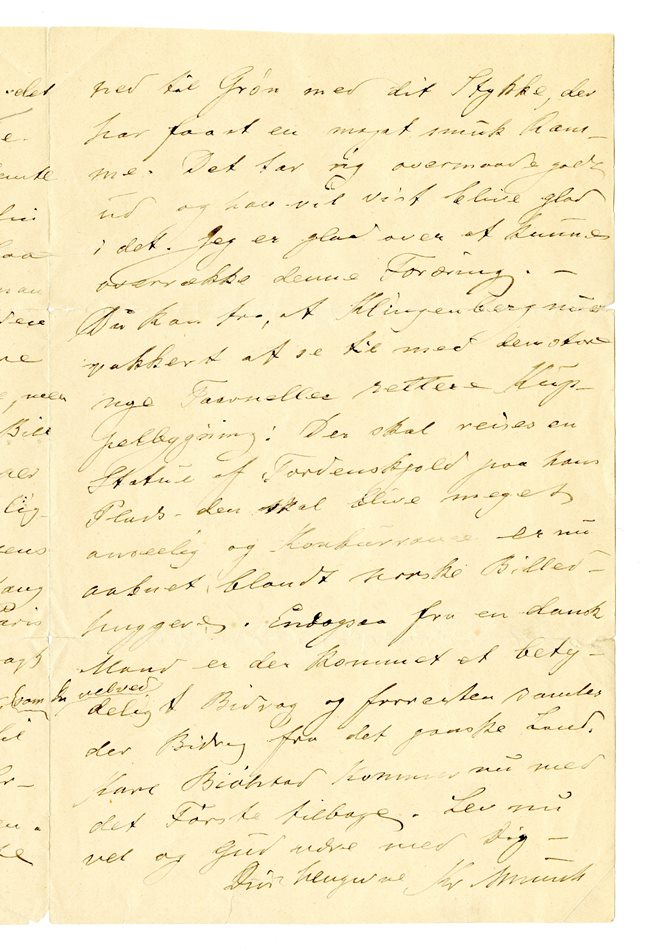 ned til Grøn med dit Stykke, der
har faaet en meget smuk Ram-
me. Det tar sig overmaade godt
ud og han vil vist blive glad
i det. Jeg er glad over at kunne
overrække denne Foræring. –
Du kan tro, at Klingenberg nu er
vakkert at se til med den store
nye Taarneller rettere Kup-
pelbygning: Der skal reises en
Statue af Tordenskjold paa hans
Plads – den skal blive meget
anseelig og Konkurrance er nu
aabnet blandt norske Billed-
huggere. Endogsaa fra en dansk
Mand er der kommet et bety-
deligt Bidrag og forresten samles
der Bidrag fra det ganske Land.
Kare Biølstad kommer nu med
det Første tilbage. Lev nu
vel og Gud være med Dig –
Din hengivne Chr Munch
det
som Du velved
Bill
Paris